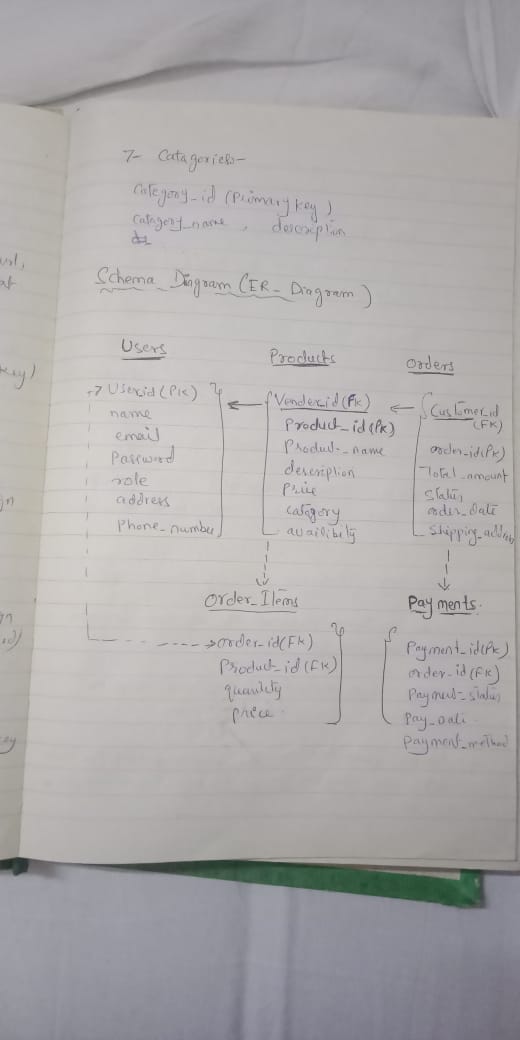 7- Catagories-
Category_id (Primary key)
Category_name, description
Schema Diagram (ER- Diagram)
Users
Userid (PK)
name
email
Password
role
address
Phone_number
Products
Vender_id (FK)
Product_id (PK)
Product_name
description
Price
category
availibity
Orders
Customer_id
(FK)
order_id (PK)
Total_amount
Status
order_date
Shipping_address
Order_Items
order_id (FK)
Product_id (FK)
quantity
price
Payments
Payment_id (PK)
order_id (FK)
Payment_status
Pay_date
Payment_method
url,
key)